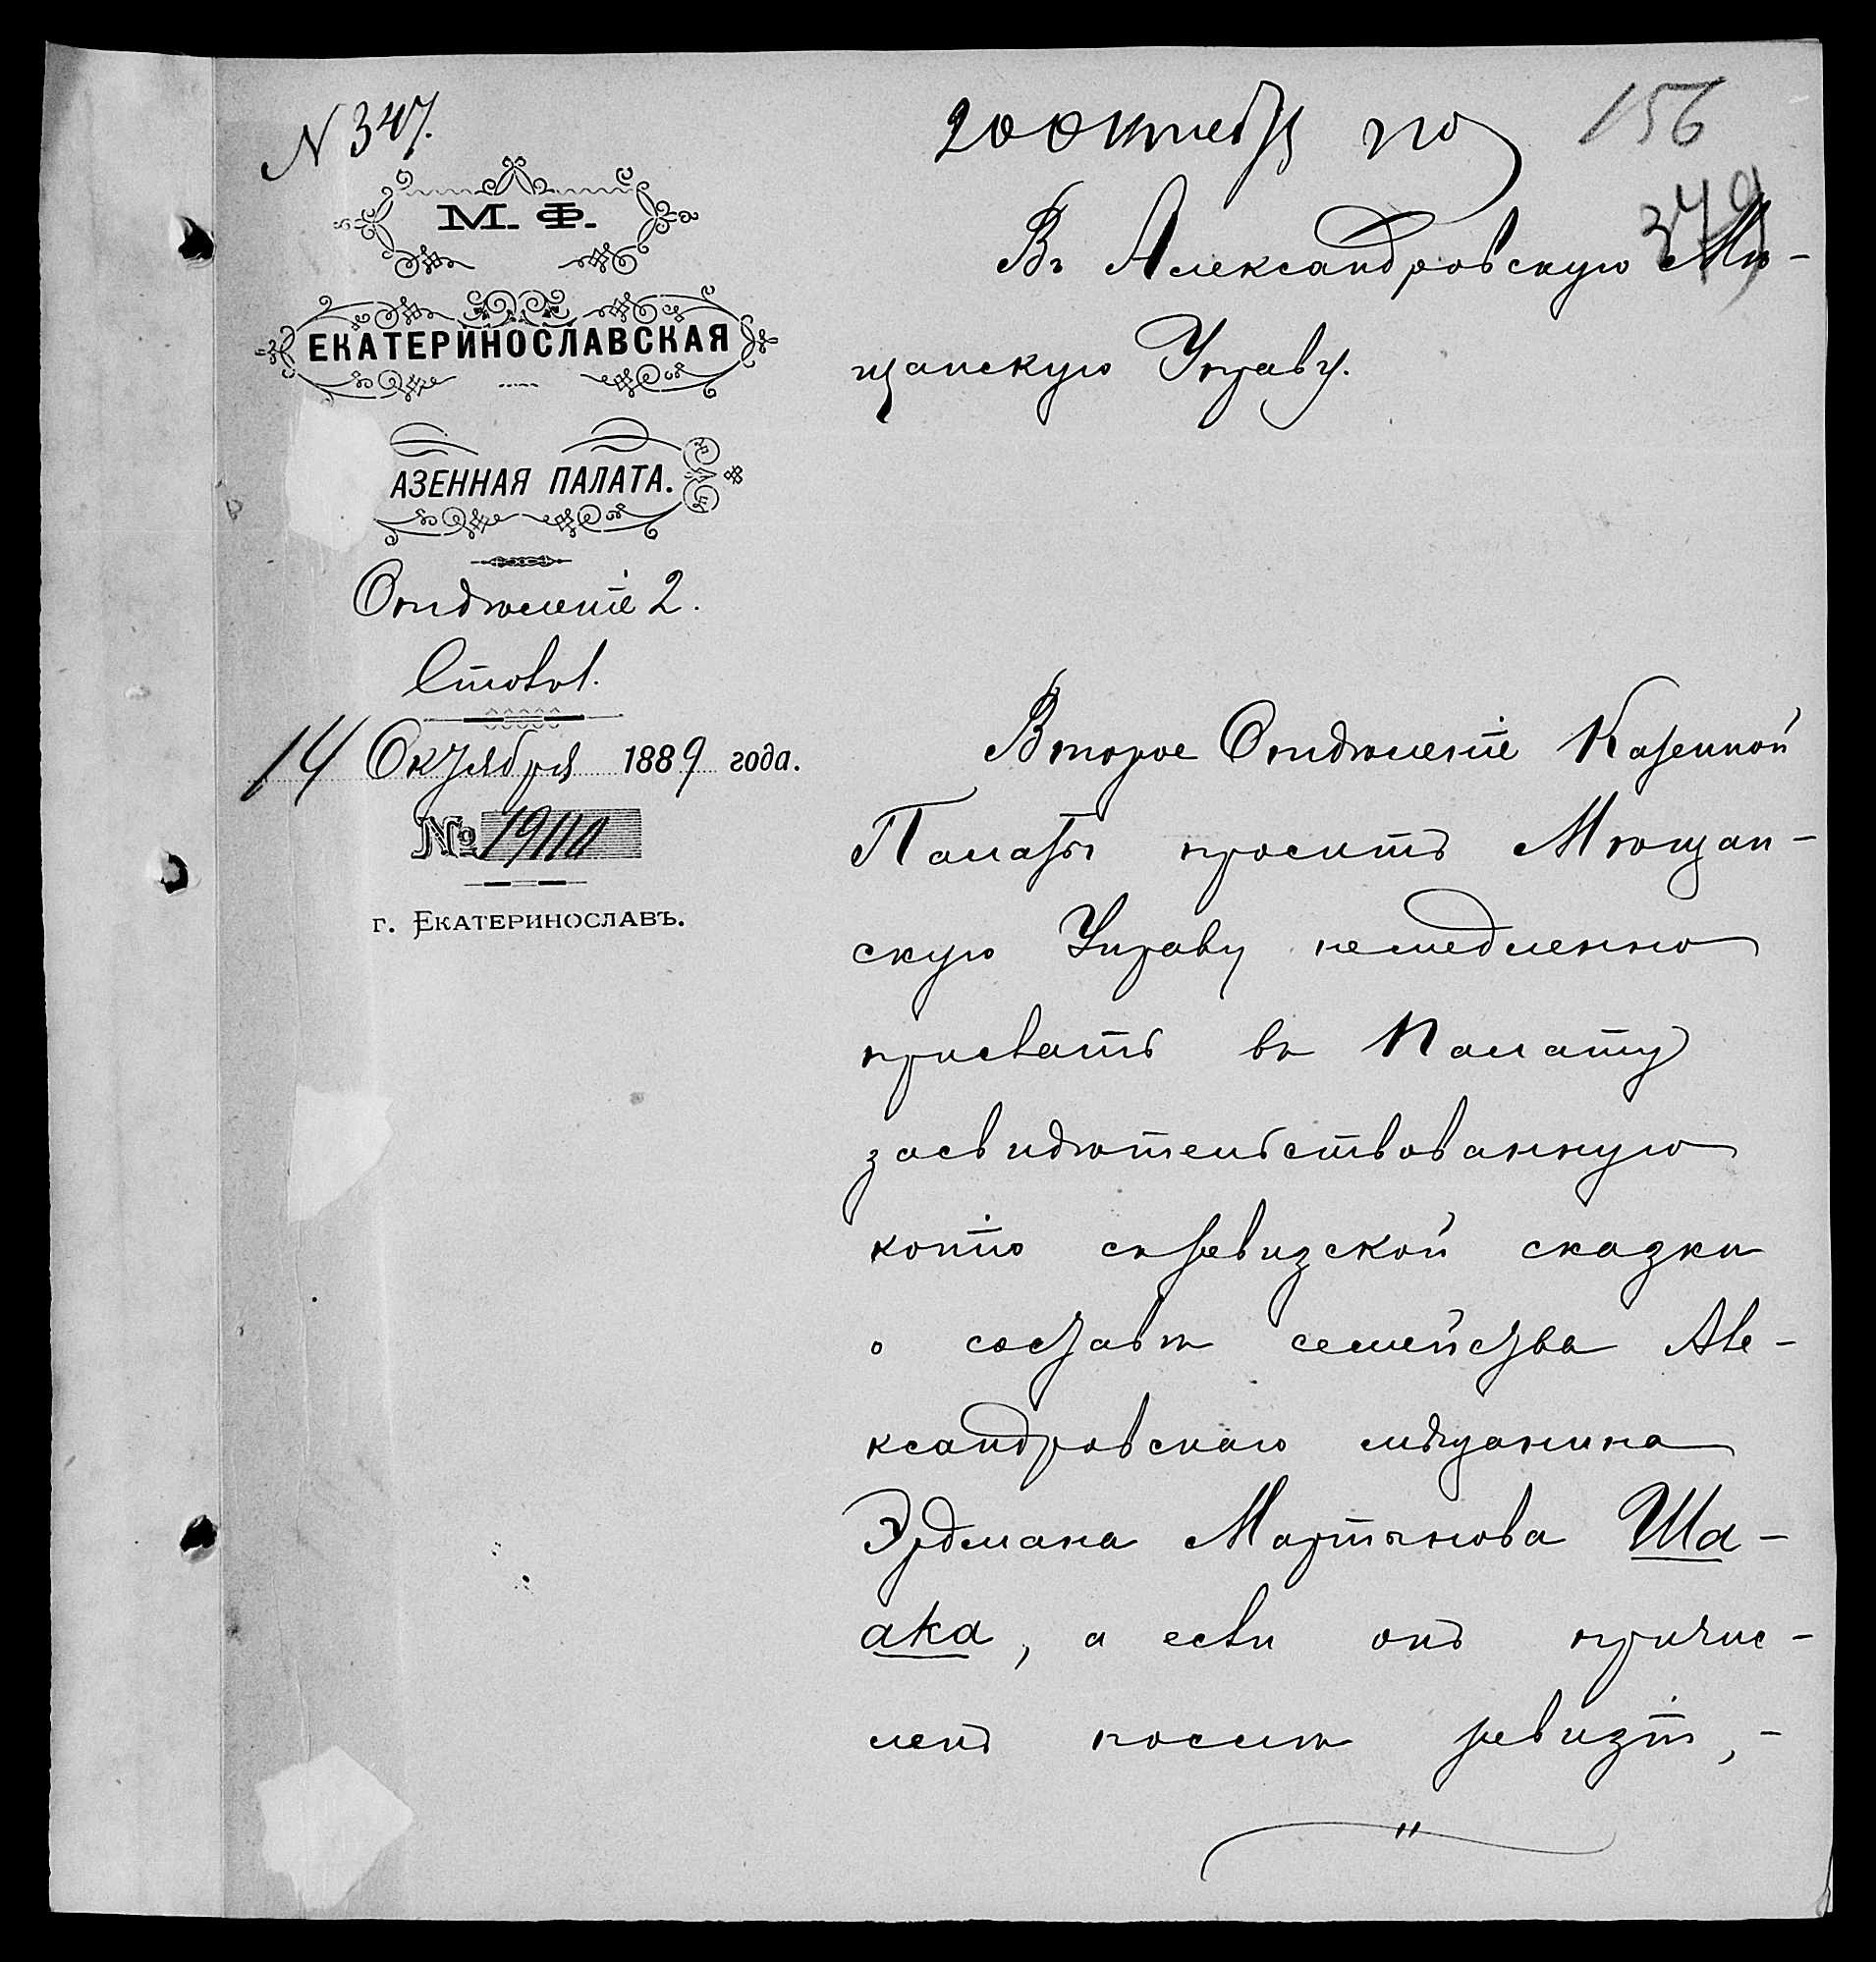 N 347.
20 октября
156
М. Ф.
ЕКАТЕРИНОСЛАВСКАЯ
АЗЕННАЯ ПАЛАТА.
Отдѣленіе 2.
Столъ 1.
14 Октября 1889 года.
№ 19110
г. Екатеринославъ.
Въ Александровскую Мѣ-
щанскую Управу.
Второе Отдѣленіе Казенной
Палаты проситъ Мѣщан-
скую Управу немедленно
прислать въ Палату
засвидѣтельствованную
копію съ ревизской сказки
о составѣ семейства Але-
ксандровскаго мѣщанина
Эрдмана Мартынова Ша-
ака, а если онъ причис-
ленъ послѣ ревизіи, -